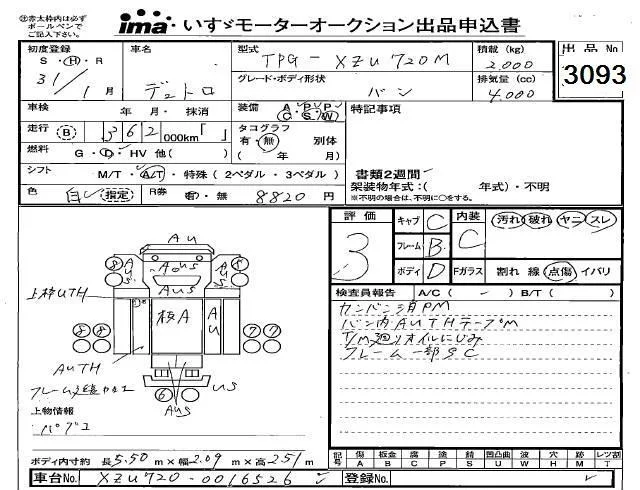 ㊟赤太枠内は必ず
ボールペンで
ご記入下さい。
ima いすゞモーターオークション出品申込書
初度登録 車名 型式 TPG-XZU720M 積載 (kg) 2,000 出品 No
S・H・R 31/1月 デュトロ グレード・ボディ形状 バン 排気量 (cc) 4,000 3093
車検 年 月・抹消 装備 A・P・P C・S・W 特記事項
走行 B 362 000km「 」 タコグラフ 有・無 別体
燃料 G・D・HV 他( ) ( 年 月)
シフト M/T・A/T・特殊(2ペダル・3ペダル) 書類2週間
色 白 指定 R券 有・無 8820円 架装物年式:( 年式)・不明
※不明の場合は、不明に〇をする。
評価 キャブ C 内装 汚れ・破れ・ヤニ・スレ
3 フレーム B C
ボディ D Fガラス 割れ 線 点傷 イバリ
検査員報告 A/C( ) B/T( )
カンバン消PM
バン内AUTHテープM
T/M廻リオイルにじみ
フレーム一部SC
AU
8 AUS AUS AUS 6
AUS
上枠UTH
板A AU
8 8 7 7
AUTH
US
6
AUS
上物情報
パブコ
ボディ内寸約 長5.50m×幅2.09m×高2.51m
記号 傷A 板金B 腐C 塗P 錆S 凹凸曲U 波W 穴H 跡M 欠T レツ割
車台No. XZU720-0016526 登録No.